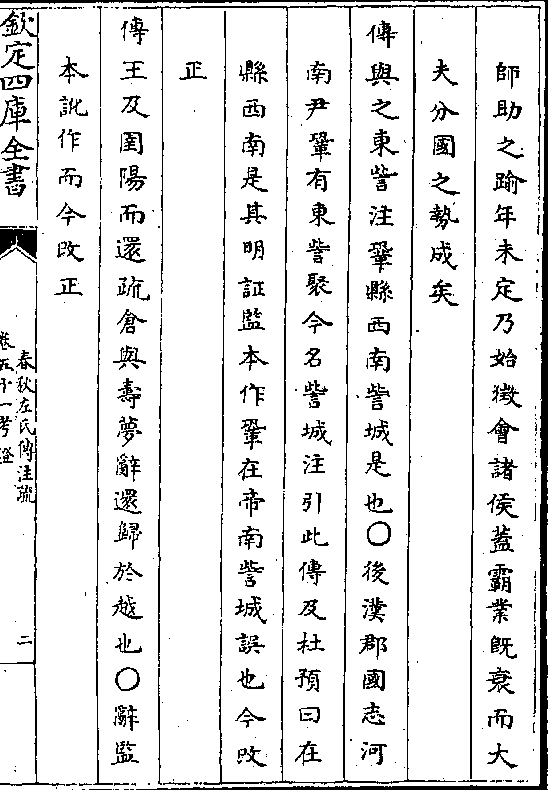 師助之踰年未定乃始徴會諸侯蓋霸業既衰而大
夫分國之勢成矣
傳與之東訾注鞏縣西南訾城是也〇後漢郡國志河
南尹鞏有東訾聚今名訾城注引此傳及杜預曰在
縣西南是其明証監本作鞏在帝南訾城誤也今改
正
傳王及圉陽而還疏倉與壽夢辭還歸於越也〇辭監
本訛作而今改正
欽定四庫全書
春秋左氏傳注疏
卷五十一考證
二